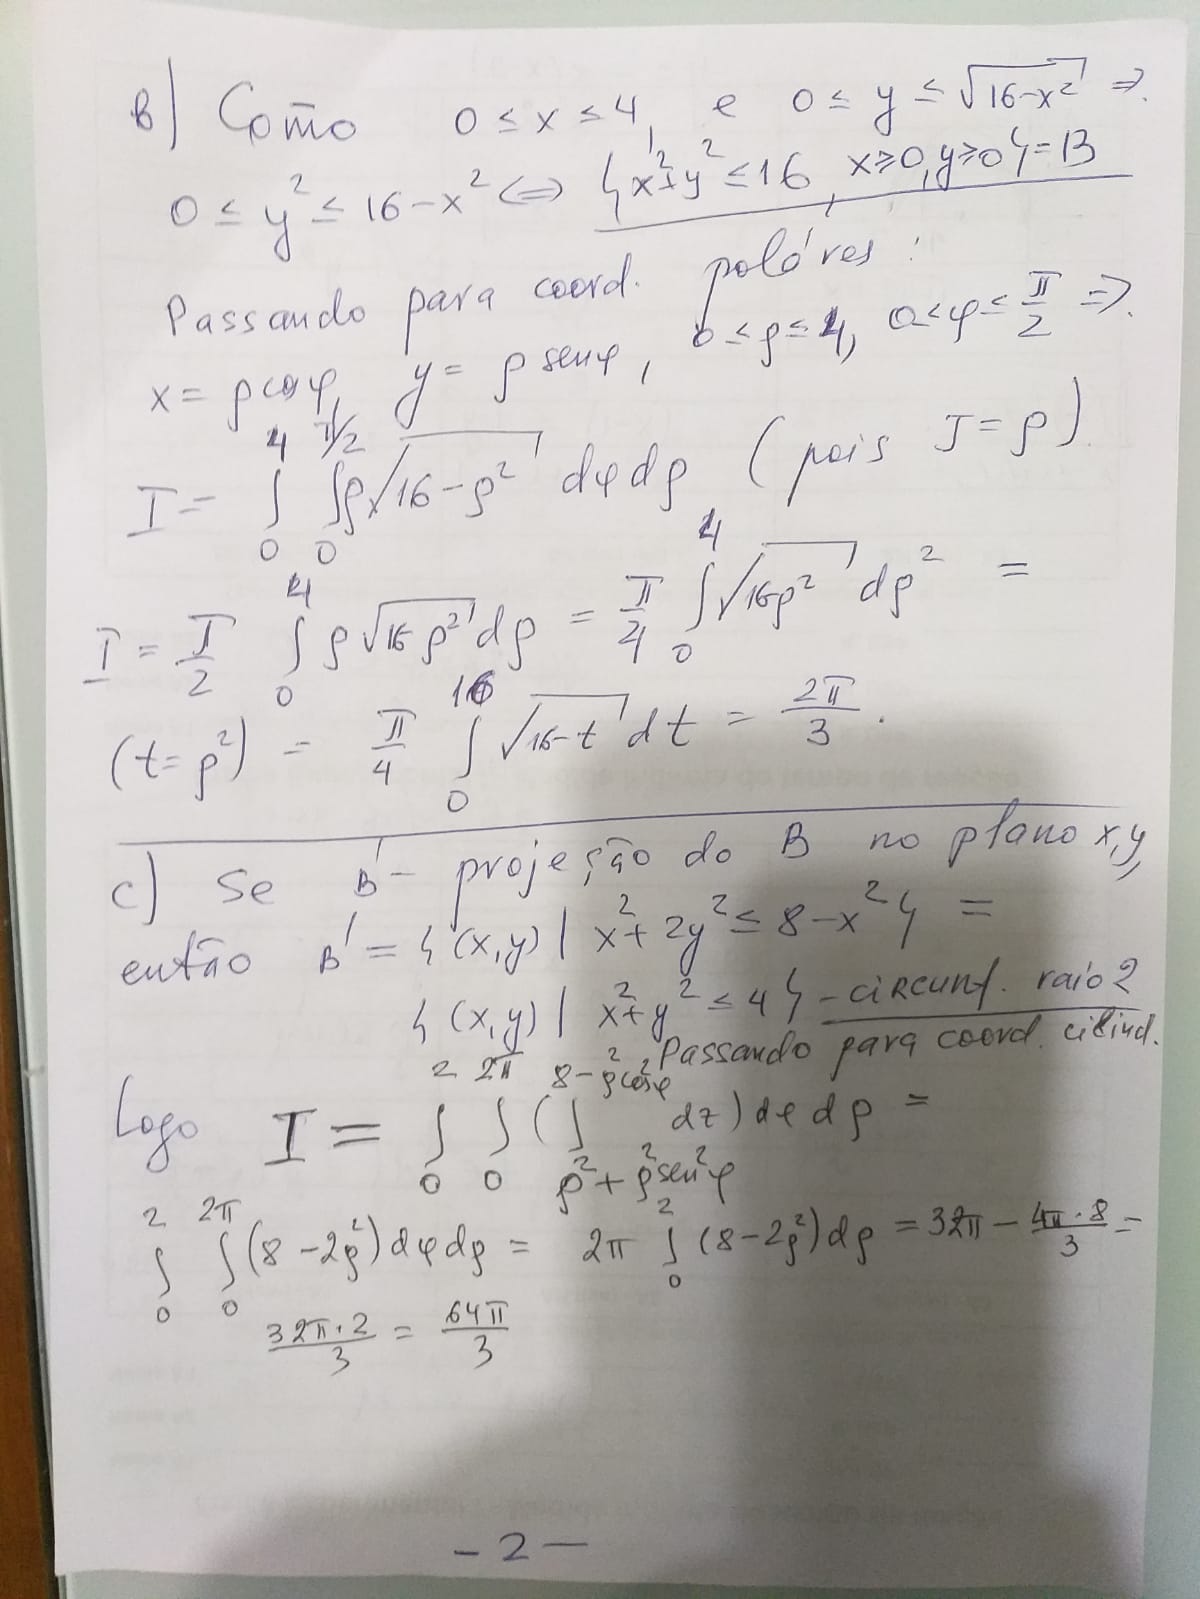 b) Como 0 ≤ x ≤ 4, e 0 ≤ y ≤ √(16-x²) ⇒
0 ≤ y² ≤ 16-x² ⇔ {x²+y² ≤ 16, x≥0, y≥0} = B
Passando para coord. poláres:
x = ρcosφ, y = ρ senφ, 0 ≤ ρ ≤ 4, 0 ≤ φ ≤ π/2 ⇒
I = ∫₀⁴ ∫₀^{π/2} ρ√(16-ρ²) dφdρ (pois J = ρ)
I = π/2 ∫₀⁴ ρ√(16-ρ²) dρ = π/4 ∫₀⁴ √(16-ρ²) dρ² =
(t=ρ²) = π/4 ∫₀^{16} √(16-t) dt = 2π/3.
c) Se B' - projeção do B no plano x,y,
então B' = {(x,y) | x²+2y² ≤ 8-x²} =
{(x,y) | x²+y² ≤ 4} - circunf. raio 2
Passando para coord. cilind.
Logo I = ∫₀² ∫₀^{2π} (∫_{ρ²+ρ²sen²φ}^{8-ρ²cos²φ} dz) dφdρ =
∫₀² ∫₀^{2π} (8-2ρ²) dφdρ = 2π ∫₀² (8-2ρ²) dρ = 32π - 4π·8/3 =
32π·2/3 = 64π/3
-2-